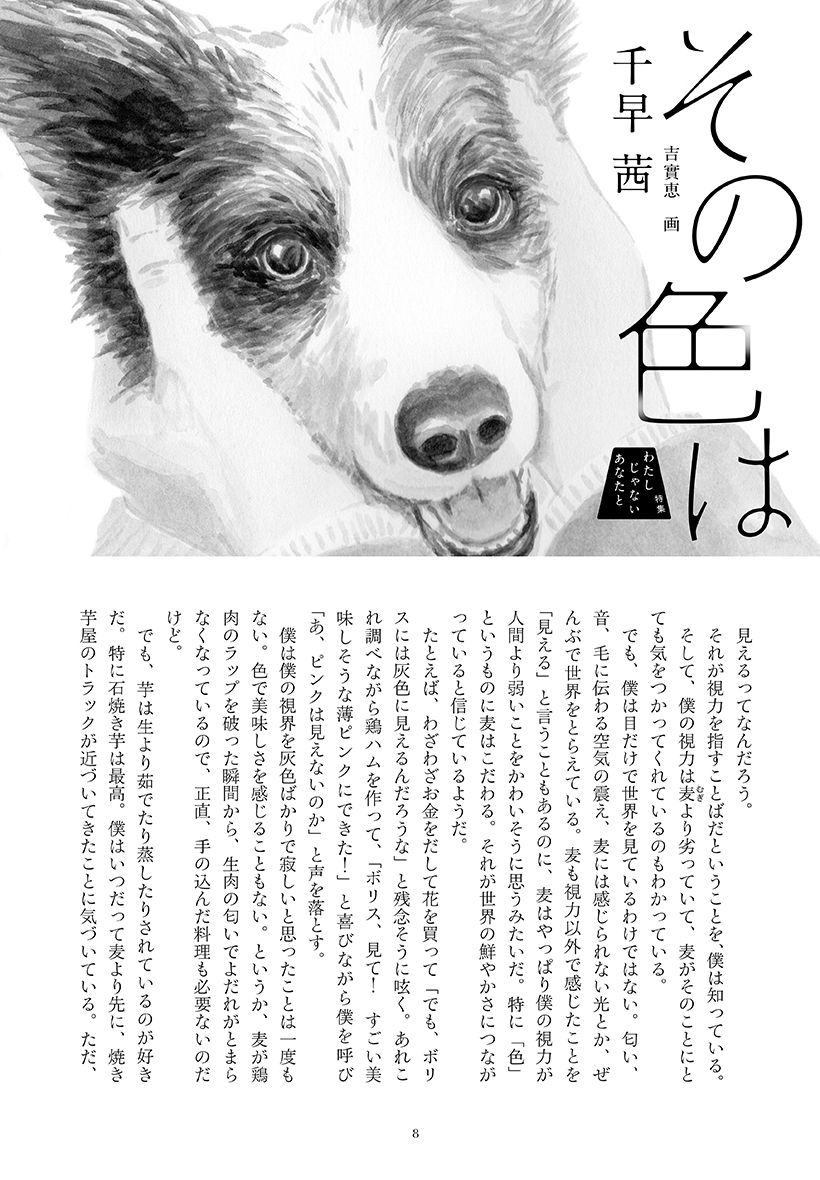 その色は
千早 茜
吉實恵 画
特集
わたし
じゃない
あなたと
見えるってなんだろう。
それが視力を指すことばだということを、僕は知っている。
そして、僕の視力は麦より劣っていて、麦がそのことにと
むぎ
ても気をつかってくれているのもわかっている。
でも、僕は目だけで世界を見ているわけではない。匂い、
音、毛に伝わる空気の震え、麦には感じられない光とか、ぜ
んぶで世界をとらえている。麦も視力以外で感じたことを
「見える」と言うこともあるのに、麦はやっぱり僕の視力が
人間より弱いことをかわいそうに思うみたいだ。特に「色」
というものに麦はこだわる。それが世界の鮮やかさにつなが
っていると信じているようだ。
たとえば、わざわざお金をだして花を買って「でも、ボリ
スには灰色に見えるんだろうな」と残念そうに呟く。あれこ
れ調べながら鶏ハムを作って、「ボリス、見て！　すごい美
味しそうな薄ピンクにできた！」と喜びながら僕を呼び
「あ、ピンクは見えないのか」と声を落とす。
僕は僕の視界を灰色ばかりで寂しいと思ったことは一度も
ない。色で美味しさを感じることもない。というか、麦が鶏
肉のラップを破った瞬間から、生肉の匂いでよだれがとまら
なくなっているので、正直、手の込んだ料理も必要ないのだ
けど。
でも、芋は生より茹でたり蒸したりされているのが好き
だ。特に石焼き芋は最高。僕はいつだって麦より先に、焼き
芋屋のトラックが近づいてきたことに気づいている。ただ、
8